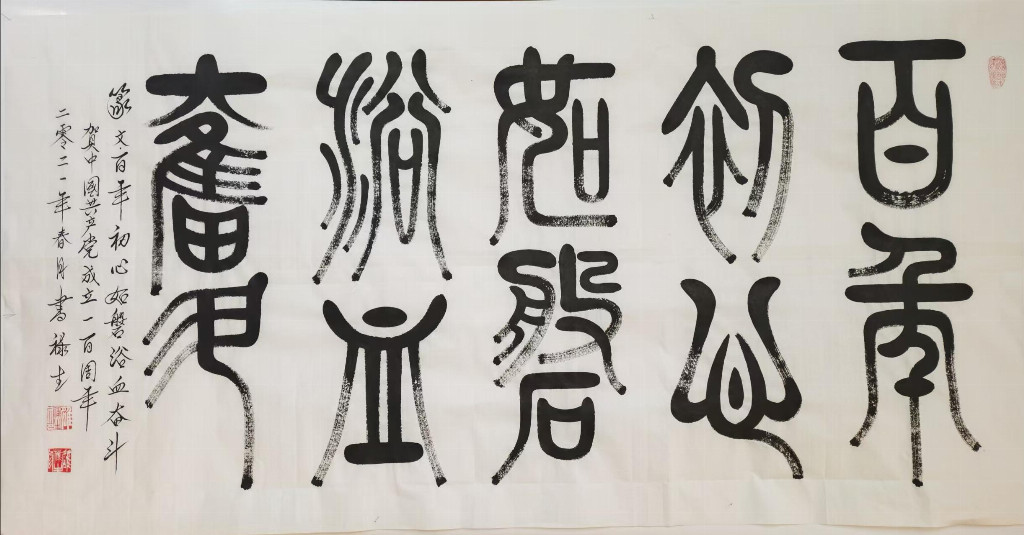 百年
初心
如磐
浴血
奮斗
篆文百年初心如磐浴血奋斗
贺中国共产党成立一百周年
二零二一年春月书禄生